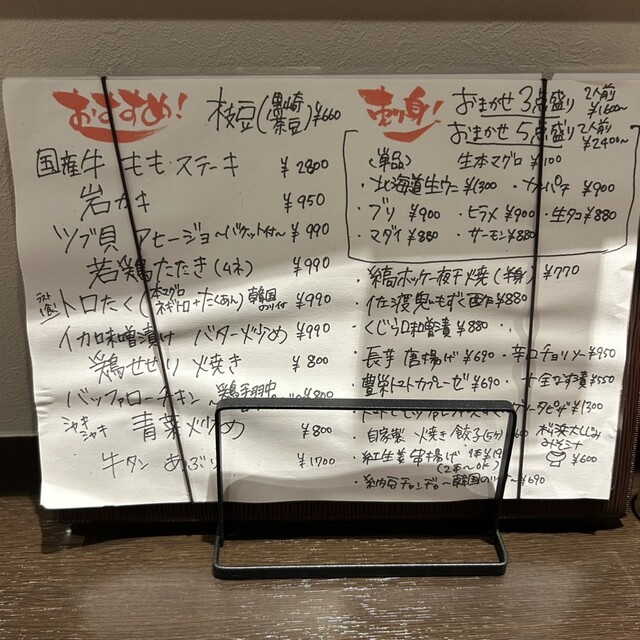 おすすめ!
枝豆(黒崎茶豆)¥660
国産牛 ももステーキ ¥2800
岩ガキ ¥950
ツブ貝 アヒージョ〜バケット付〜 ¥990
若鶏たたき(ムネ) ¥990
ラスト1食 トロたく(本マグロネギトロ+たくあん)韓国のり付 ¥990
イカ口味噌漬け バター炒め ¥990
鶏せせり 焼き ¥800
バッファローチキン〜鶏手羽中 ¥800
シャキシャキ 青菜炒め ¥800
牛タン あぶり ¥1700
刺身!
おまかせ3点盛り 2人前 ¥1600〜
おまかせ5点盛り 2人前 ¥2400〜
(単品) 生本マグロ ¥1100
・北海道生ウニ ¥1300 ・カンパチ ¥900
・ブリ ¥900 ・ヒラメ ¥900 ・生タコ ¥880
・マダイ ¥880 ・サーモン ¥880
・縞ホッケ一夜干焼(半身) ¥770
・佐渡産もず酢 ¥880
・くじら口味噌漬 ¥880
・長芋 唐揚げ ¥690 ・辛口チョリソー ¥950
・豊栄トマトカプレーゼ ¥690 ・十全なす漬 ¥550
¥1300
・自家製 焼き餃子(5ヶ) 松浜大しじみみそ汁 ¥600
・紅生姜 串揚げ 1本
(2本〜OK)
・納豆チャンヂャ〜韓国のり〜 ¥690